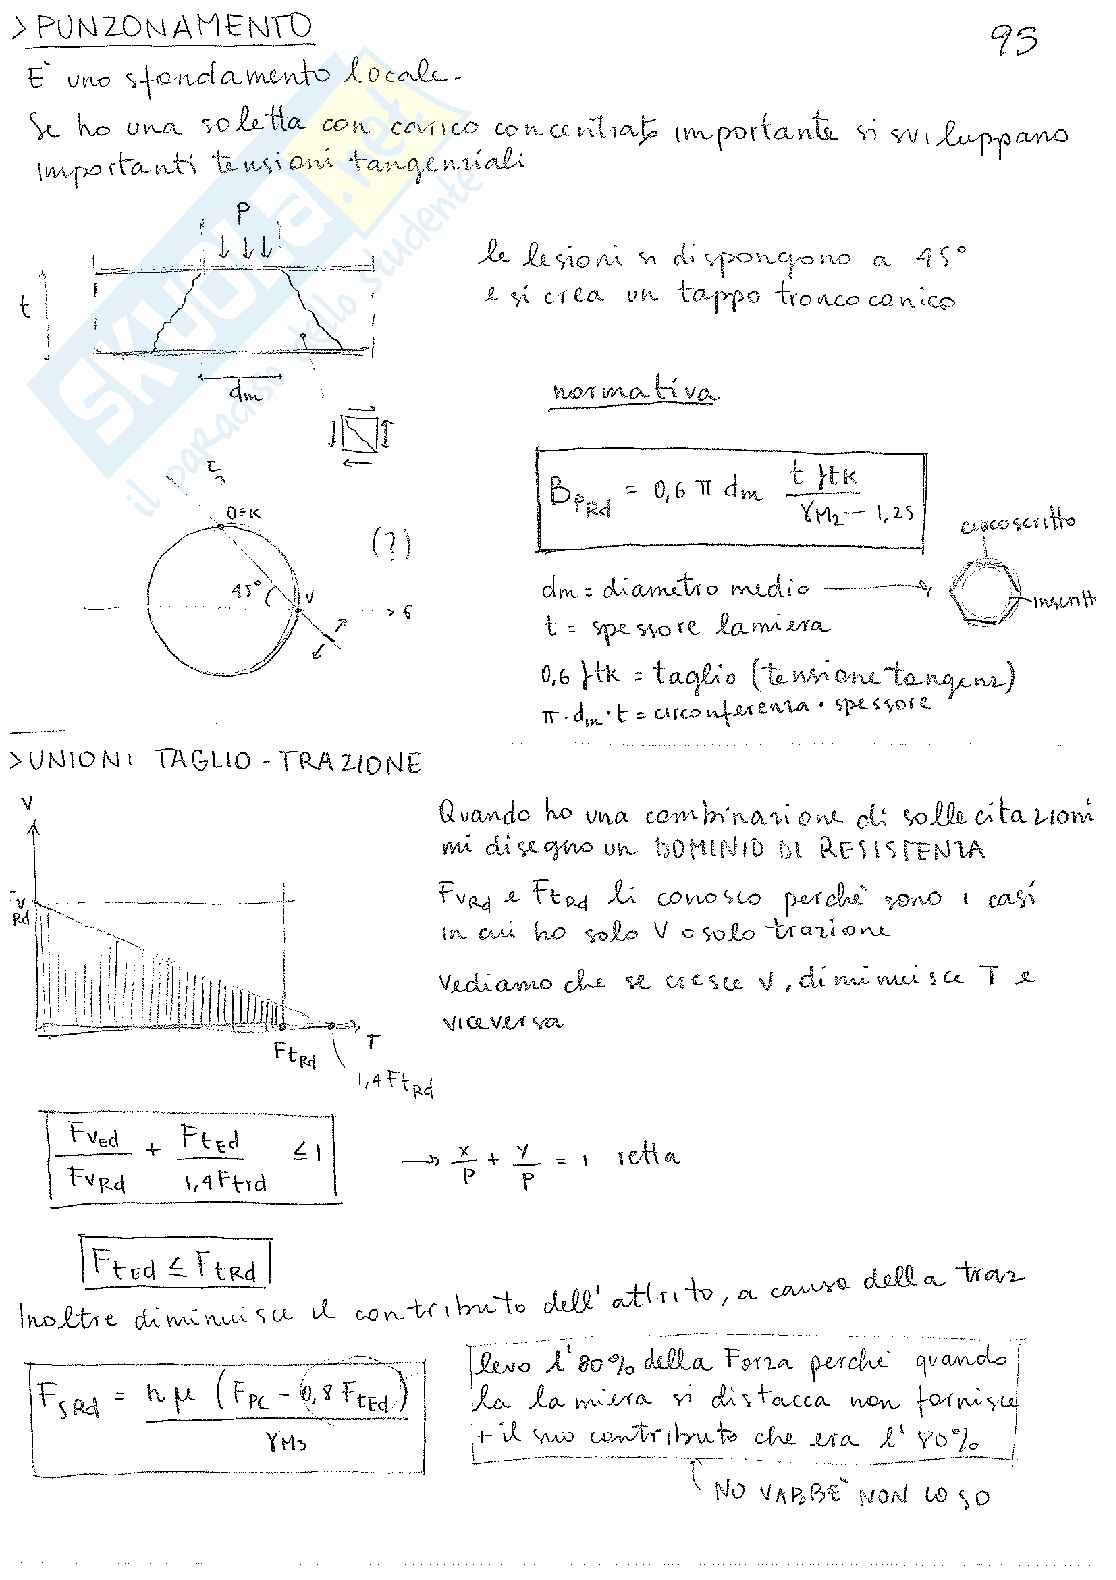 > PUNZONAMENTO
93
E' uno sfondamento locale.
Se ho una soletta con carico concentrato importante si sviluppano
importanti tensioni tangenziali
P
t
dm
le lesioni si dispongono a 45°
e si crea un tappo troncoconico
normativa
BpRd = 0,6 π dm t ftk / γM2 – 1,25
τ
O≡K
(?)
45°
V
> σ
circoscritto
inscritto
dm = diametro medio
t = spessore lamiera
0,6 ftk = taglio (tensione tangenz)
π · dm · t = circonferenza · spessore
> UNIONI TAGLIO - TRAZIONE
V
VRd
T
FtRd
1,4 FtRd
Quando ho una combinazione di sollecitazioni
mi disegno un DOMINIO DI RESISTENZA
FvRd e FtRd li conosco perchè sono i casi
in cui ho solo V o solo trazione
Vediamo che se cresce V, diminuisce T e
viceversa
FvEd / FvRd + FtEd / 1,4 Ftrd ≤ 1
→ x/p + y/p = 1 retta
FtEd ≤ FtRd
Inoltre diminuisce il contributo dell'attrito, a causa della traz
FSRd = n μ (FPC – 0,8 FtEd) / γM3
levo l'80% della Forza perchè quando
la lamiera si distacca non fornisce
+ il suo contributo che era l'80%
NO VABBE' NON LO SO
SKUOLA.net
il paradiso dello studente